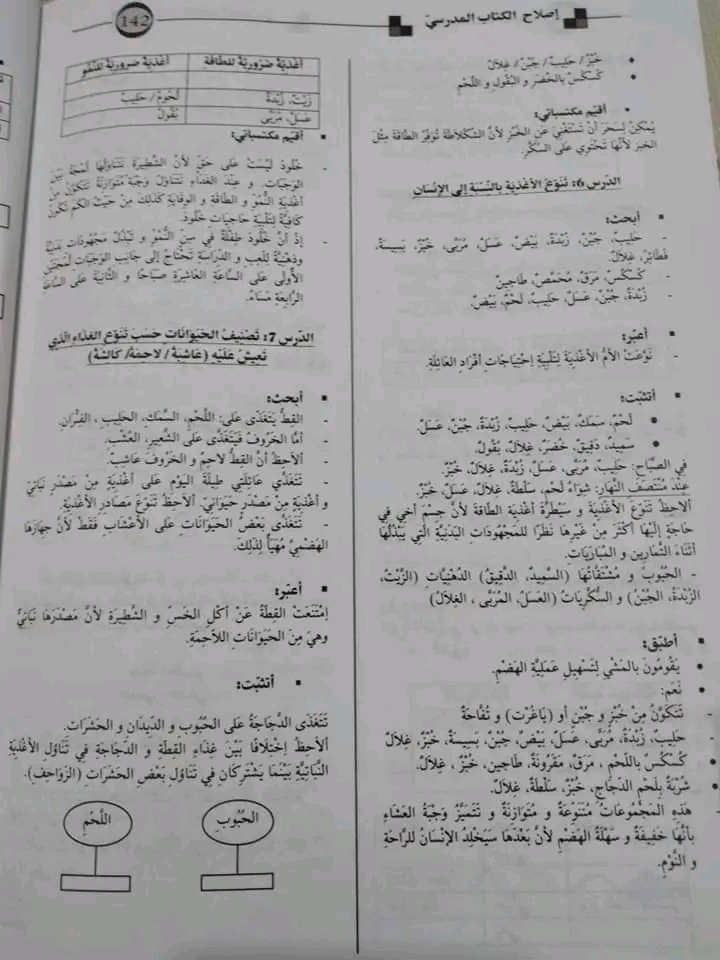 إصلاح الكتاب المدرسيّ
142
خُبْزٌ/ حَلِيبٌ/ جُبْنٌ/ غِلاَلٌ
كُسْكُسٌ بِالخُضَرِ و البُقُولِ و اللَّحْمِ
أقيّم مكتسباتي:
يُمْكِنُ لِسَحَرَ أنْ تَسْتَغْنِيَ عَنِ الخُبْزِ لأنَّ الشُّكُلاَطَةَ تُوَفِّرُ الطَّاقَةَ مِثْلَ
الخبز لأنَّهَا تَحْتَوِي عَلَى السُّكَّرِ.
الدّرس 6: تَنَوُّعُ الأغْذِيَةِ بِالنِّسْبَةِ إلَى الإنْسَانِ
أبحث:
- حَلِيبٌ، جُبْنٌ، زُبْدَةٌ، بَيْضٌ، عَسَلٌ، مُرَبَّى، خُبْزٌ، بَسِيسَةٌ،
فَطَائِرٌ، غِلاَلٌ.
- كُسْكُسٌ، مَرَقٌ، مُحَمَّصٌ، طَاجِينٌ
- زُبْدَةٌ، جُبْنٌ، عَسَلٌ، حَلِيبٌ، لَحْمٌ، بَيْضٌ.
أعبّر:
- نَوَّعَتْ الأُمُّ الأغْذِيَةَ لِتَلْبِيَةِ إحْتِيَاجَاتِ أفْرَادِ العَائِلَةِ.
أتثبّت:
لَحْمٌ، سَمَكٌ، بَيْضٌ، حَلِيبٌ، زُبْدَةٌ، جُبْنٌ، عَسَلٌ.
سَمِيدٌ، دَقِيقٌ، خُضَرٌ، غِلاَلٌ، بُقُولٌ.
في الصَّبَاحِ: حَلِيبٌ، مُرَبَّى، عَسَلٌ، زُبْدَةٌ، غِلاَلٌ، خُبْزٌ.
عِنْدَ مُنْتَصَفِ النَّهَارِ: شِوَاءُ لَحْمٍ، سَلَطَةٌ، غِلاَلٌ، عَسَلٌ، خُبْزٌ.
ألاَحِظُ تَنَوُّعَ الأغْذِيَةِ و سَيْطَرَةَ أغْذِيَةِ الطَّاقَةِ لأنَّ جِسْمَ أخِي في
حَاجَةٍ إلَيْهَا أكْثَرَ مِنْ غَيْرِهَا نَظَرًا لِلْمَجْهُودَاتِ البَدَنِيَّةِ الَّتِي يَبْذُلُهَا
أثْنَاءَ التَّمَارِينِ و المُبَارَيَاتِ.
- الحُبُوبُ و مُشْتَقَّاتُهَا (السَّمِيدُ، الدَّقِيقُ) الدُّهْنِيَّاتِ (الزَّيْتُ،
الزُّبْدَةُ، الجُبْنُ) و السُّكَّرِيَاتُ (العَسَلُ، المُرَبَّى ، الغِلاَلُ)
أطبّق:
يَقُومُونَ بِالمَشْيِ لِتَسْهِيلِ عَمَلِيَّةِ الهَضْمِ.
نَعَم:
- تَتَكَوَّنُ مِنْ خُبْزٍ و جُبْنٍ أو (يَاغُرْت) و تُفَّاحَةٌ
- حَلِيبٌ، زُبْدَةٌ، مُرَبَّى، عَسَلٌ، بَيْضٌ، جُبْنٌ، بَسِيسَةٌ، خُبْزٌ، غِلاَلٌ
كُسْكُسٌ بِاللَّحْمِ ، مَرَقٌ، مَقْرُونَةٌ، طَاجِين، خُبْزٌ ، غِلاَلٌ.
شُرْبَةٌ بِلَحْمِ الدَّجَاجِ، خُبْزٌ، سَلَطَةٌ، غِلاَلٌ.
- هَذِهِ المَجْمُوعَاتُ مُتَنَوِّعَةٌ و مُتَوَازِنَةٌ و تَتَمَيَّزُ وَجْبَةُ العَشَاءِ
بِأنَّهَا خَفِيفَةٌ و سَهْلَةُ الهَضْمِ لأنَّ بَعْدَهَا سَيَخْلُدُ الإنْسَانُ لِلرَّاحَةِ
و النَّوْمِ.
أغْذِيَةٌ ضَرُورِيَّةٌ لِلطَّاقَةِ أغْذِيَةٌ ضَرُورِيَّةٌ لِلنُّمُوِّ
زَيْتٌ، زُبْدَةٌ لُحُومٌ/ حَلِيبٌ
عَسَلٌ، مُرَبَّى بُقُولٌ
أقيّم مكتسباتي:
- خُلُودُ لَيْسَتْ عَلَى حَقٍّ لأنَّ الشَّطِيرَةَ تَتَنَاوَلُهَا لُمْجَةً بَيْنَ
الوَجَبَاتِ. و عِنْدَ الغَدَاءِ تَتَنَاوَلُ وَجْبَةً مُتَوَازِنَةً تَتَكَوَّنُ مِنْ
أغْذِيَةِ النُّمُوِّ و الطَّاقَةِ و الوِقَايَةِ كَذَلِكَ مِنْ حَيْثُ الكَمِّ تَكُونُ
كَافِيَةً لِتَلْبِيَةِ حَاجِيَاتِ خُلُودَ.
- إذْ أنَّ خُلُودَ طِفْلَةٌ في سِنِّ النُّمُوِّ و تَبْذُلُ مَجْهُودَاتٍ بَدَنِيَّةً
وَذِهْنِيَّةً لِلَّعِبِ و الدِّرَاسَةِ تَحْتَاجُ إلَى جَانِبِ الوَجَبَاتِ لُمْجَتَيْنِ
الأُولَى عَلَى السَّاعَةِ العَاشِرَةِ صَبَاحًا و الثَّانِيَةُ عَلَى السَّاعَةِ
الرَّابِعَةِ مَسَاءً.
الدّرس 7: تَصْنِيفُ الحَيَوَانَاتِ حَسَبَ تَنَوُّعِ الغِذَاءِ الَّذِي
تَعِيشُ عَلَيْهِ (عَاشِبَةٌ/ لاَحِمَةٌ/ كَالِشَةٌ)
أبحث:
- القِطُّ يَتَغَذَّى عَلَى: اللَّحْمِ، السَّمَكِ، الحَلِيبِ ، الفِئْرَانِ.
- أمَّا الخَرُوفُ فَيَتَغَذَّى عَلَى الشَّعِيرِ، العُشْبِ.
- ألاَحِظُ أنَّ القِطَّ لاَحِمٌ و الخَرُوفَ عَاشِبٌ.
- تَتَغَذَّى عَائِلَتِي طِيلَةَ اليَوْمِ عَلَى أغْذِيَةٍ مِنْ مَصْدَرٍ نَبَاتِيّ
و أغْذِيَةٍ مِنْ مَصْدَرٍ حَيَوَانِيّ. ألاَحِظُ تَنَوُّعَ مَصَادِرِ الأغْذِيَةِ.
- تَتَغَذَّى بَعْضُ الحَيَوَانَاتِ عَلَى الأعْشَابِ فَقَطْ لأنَّ جِهَازَهَا
الهَضْمِيَّ مُهَيَّأٌ لِذَلِكَ.
أعبّر:
إمْتَنَعَتْ القِطَّةُ عَنْ أكْلِ الخَسِّ و الشَّطِيرَةِ لأنَّ مَصْدَرَهَا نَبَاتِيّ
وهِيَ مِنَ الحَيَوَانَاتِ اللاَّحِمَةِ.
أتثبّت:
تَتَغَذَّى الدَّجَاجَةُ عَلَى الحُبُوبِ و الدِّيدَانِ و الحَشَرَاتِ.
ألاَحِظُ إخْتِلاَفًا بَيْنَ غِذَاءِ القِطَّةِ و الدَّجَاجَةِ في تَنَاوُلِ الأغْذِيَةِ
النَّبَاتِيَّةِ بَيْنَمَا يَشْتَرِكَانِ في تَنَاوُلِ بَعْضِ الحَشَرَاتِ (الزَّوَاحِفِ).
الحُبُوبِ اللَّحْمِ